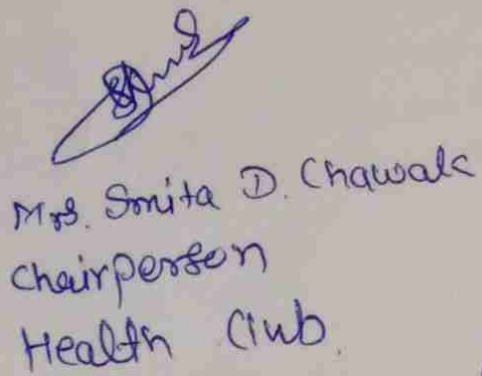 Mrs. Smita D. Chawak
Chairperson
Health Club.